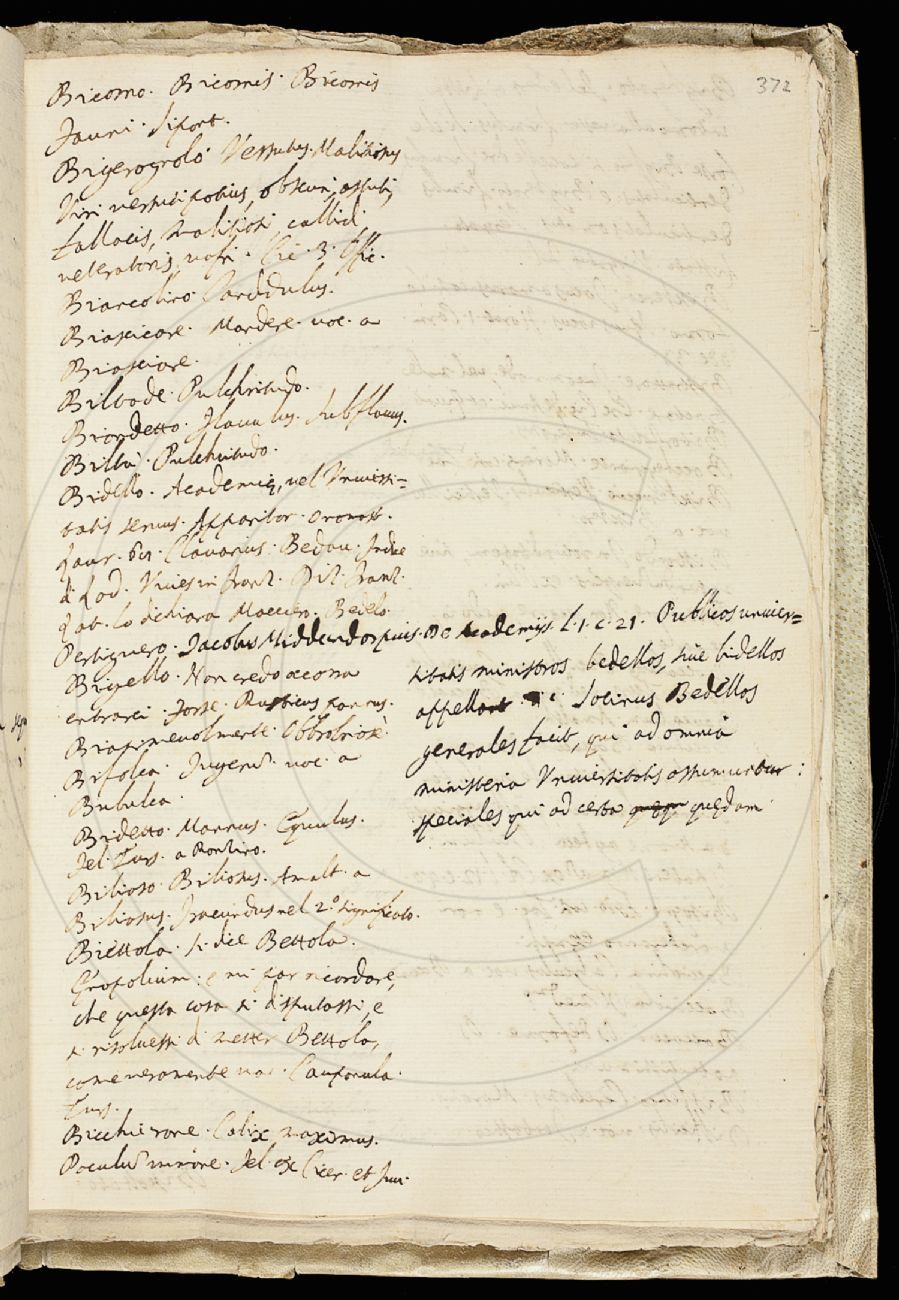 372
Bicorno. Bicornis. Bicornis
Fauni. Sipont.
Bigerognolo. Versutus. Malitiosus
Viri versuti potius, obscuri, astuti,
fallacis, malitiosi, callidi,
veteratoris, vafri. Cic. 3. Offic.
Biancolino. Candidulus.
Biascicare. Mandere. voc. a
Biasciare.
Biltade. Pulchritudo.
Biondetto. Flavulus. Subflavus.
Biltà. Pulchritudo.
Bidello. Academię, vel Universi=
tatis servus. Apparitor.
Laur. Clavarius. Bedau. Indice
di Lod. Vives in Franz. Dit. Franz.
Lat. lo dichiara Macciero. Bedelo.
Pertiguero. Jacobus Middendorpius. De Academijs. L. 1. c. 21. Publicos univer=
sitatis ministros bedellos, sive bidellos
appellant. Solinus Bedellos
generales facit, qui ad omnia
ministeria Universitatis assumuntur:
speciales qui ad certa quędam
Bigello. Non credo accoma
entrarci. Forse. Rusticus pannus.
Biasimevolmente. Obbrobriosè.
Bifolca. Jugerū. voc. a
Bubulca.
Bidetto. Mannus. Equulus.
Jel. Turs. a Ronzino.
Bilioso. Biliosus. Amalt. a
Biliosus. Iracundus nel 2.º significato.
Biettola. si dice Bettola.
Œnopolium: e mi par ricordare,
che questa cosa si disputassi, e
si risolvessi di metter Bettola,
come veramente va. Cauponula.
Turs.
Bicchierone. Calix maximus.
Poculū minore. Jel. ex Cicer. et Juu.